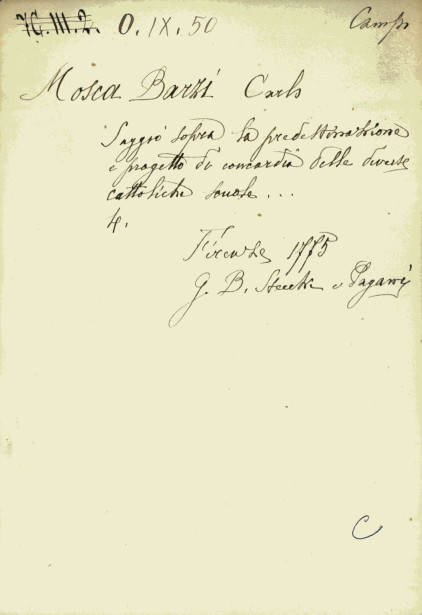 7G.III.2. O.IX.50 Campi
Mosca Barzi Carlo
Saggio sopra la predestinazione
e progetto di concordia delle diverse
cattoliche scuole ...
4.
Firenze 1775
G. B. Stecchi e Pagani
C